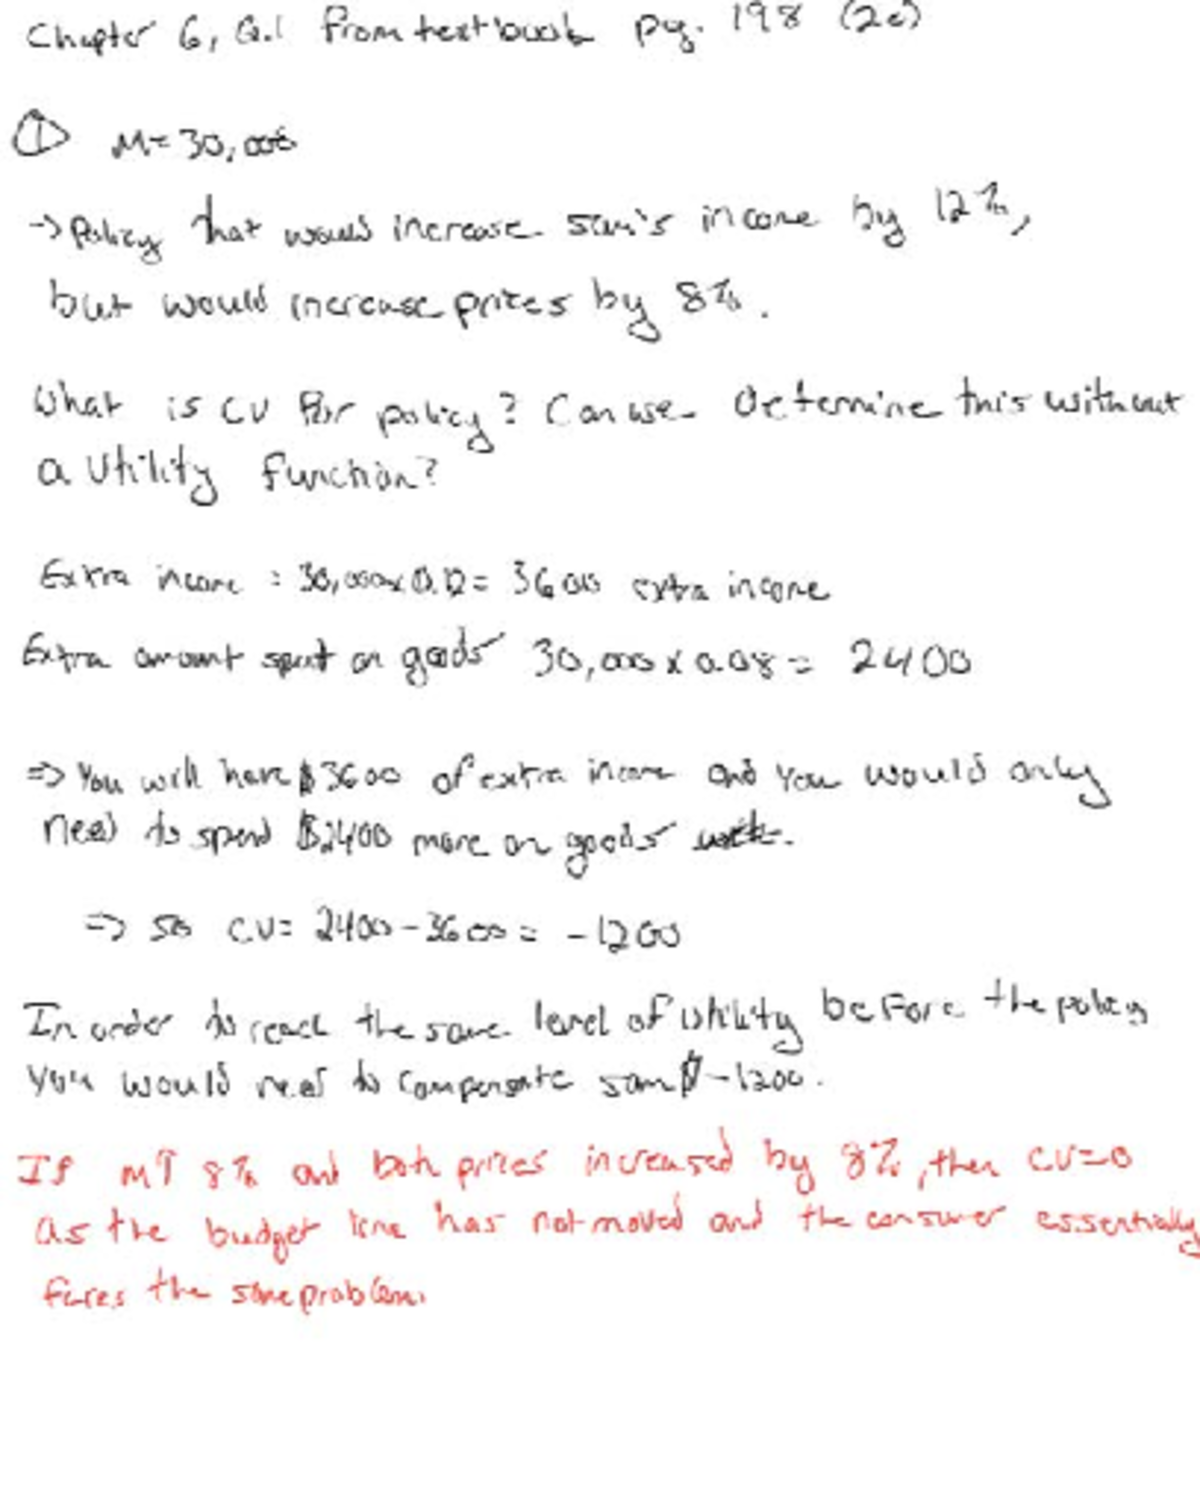 Chapter 6, Q.1 from textbook pg. 198 (2e)
① M= 30,000
→ Policy that would increase Sam's income by 12%,
but would increase prices by 8%.
What is CV for policy? Can we determine this without
a utility function?
Extra income : 30,000x0.12= 3600 extra income
Extra amount spent on goods 30,000 x 0.08 = 2400
⇒ You will have $3600 of extra income and you would only
need to spend $2400 more on goods
⇒ so CV= 2400-3600 = -1200
In order to reach the same level of utility before the policy
you would need to compensate Sam $-1200.
If M↑ 8% and both prices increased by 8%, then CV=0
as the budget line has not moved and the consumer essentially
faces the same problem.